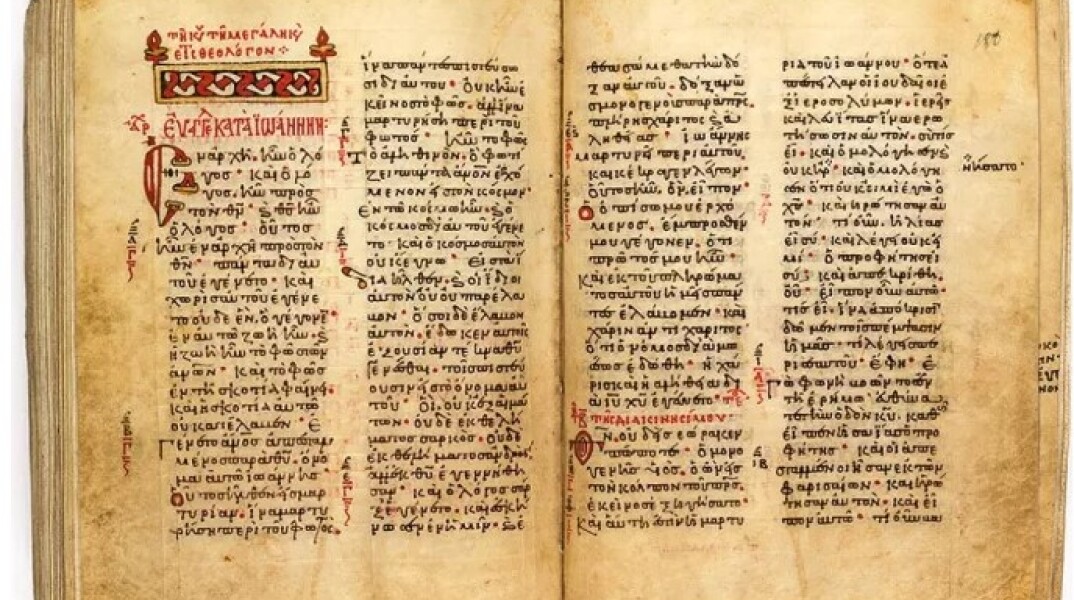 τῆ κυ τῆ μεγάλη κυ
εἰς θεολόγον
ΕΥΑΓΓΕ ΚΑΤΑ ΙΩΑΝΝΗΝ
Ἐν ἀρχῆ ἦν ὁ λό
γος· καὶ ὁ λό
γος ἦν πρὸς
τὸν θν· καὶ θς ἦν
ὁ λόγος· οὗτος
ἦν ἐν ἀρχῆ πρὸς τὸν
θν· πάντα δι' αὐ
τοῦ ἐγένετο· καὶ
χωρὶς αὐτοῦ ἐγένε
το οὐδὲ ἕν. ὃ γέγονε·
ἐν αὐτῶ ζωὴ ἦν· καὶ
ἡ ζωὴ ἦν τὸ φῶς τῶν
ἀνων· καὶ τὸ φῶς
ἐν τῆ σκοτία φαίνει·
καὶ ἡ σκοτία αὐτὸ
οὐ κατέλαβεν. Ἐ
γένετο ἄνος ἀπεσταλ
μένος παρὰ θυ· ὄνο
μα αὐτῶ ἰωάννης·
Οὗτος ἦλθεν εἰς μαρ
τυρίαν. ἵνα μαρτυ
ρήση περὶ τοῦ φωτός·
ἵνα πάντες πιστεύσω
σι δι' αὐτοῦ· οὐκ ἦν ἐ
κεῖνος τὸ φῶς· ἀλλ' ἵνα
μαρτυρήση περὶ τοῦ
φωτός· ἦν τὸ φῶς
τὸ ἀληθινὸν. ὃ φωτί
ζει πάντα ἄνον ἐρχό
μενον εἰς τὸν κόσμον·
ἐν τῶ κόσμω ἦν· καὶ ὁ
κόσμος δι' αὐτοῦ ἐγένε
το· καὶ ὁ κόσμος αὐτὸν
οὐκ ἔγνω· εἰς τὰ ἴ
δια ἦλθεν· καὶ οἱ ἴδιοι
αὐτὸν οὐ παρέλα
βον· ὅσοι δὲ ἔλαβον
αὐτὸν. ἔδωκεν αὐτοῖς
ἐξουσίαν τέκνα θυ
γενέσθαι· τοῖς πιστεύ
ουσιν εἰς τὸ ὄνομα αὐ
τοῦ· οἳ οὐκ ἐξ αἱμά
των· οὐδὲ ἐκ θελή
ματος σαρκός· οὐδὲ
ἐκ θελήματος ἀνδρός
ἀλλ' ἐκ θυ ἐγεννήθη
σαν· καὶ ὁ λόγος σὰρ
ξ ἐγένετο· καὶ ἐσκή
νωσεν ἐν ἡμῖν· καὶ ἐ
θεασάμεθα τὴν δό
ξαν αὐτοῦ· δόξαν ὡς
μονογενοῦς παρὰ πρς
πλήρης χάριτος καὶ ἀ
ληθείας· ἰωάννης
μαρτυρεῖ περὶ αὐτοῦ.
καὶ κέκραγε λέγων·
οὗτος ἦν. ὃν εἶπον·
ὁ ὀπίσω μου ἐρχό
μενος. ἔμπροσθέν
μου γέγονεν. ὅτι
πρῶτός μου ἦν·
καὶ ἐκ τοῦ πληρώμα
τος αὐτοῦ ἡμεῖς πάν
τες ἐλάβομεν· καὶ
χάριν ἀντὶ χάριτος·
ὅτι ὁ νόμος διὰ μω
σέως ἐδόθη· ἡ χά
ρις καὶ ἡ ἀλήθεια δι
ὰ ιυ χυ ἐγένετο·
τῆ διακινησίμου·
Θν. οὐδεὶς ἑώρακεν
πώποτε· ὁ μονο
γενὴς υἱὸς. ὁ ὢν εἰς
τὸν κόλπον τοῦ πρς.
ἐκεῖνος ἐξηγήσατο·
Καὶ αὕτη ἐστὶν ἡ μαρτυ
188
ρία τοῦ ἰωάννου· ὅτε ἀ
πέστειλαν οἱ ἰουδαῖοι ἐ
ξ ἱεροσολύμων. ἱερεῖς
καὶ λευίτας ἵνα ἐρω
τήσωσιν αὐτὸν. σὺ τίς
εἶ· καὶ ὡμολόγησε καὶ
οὐκ ἠρ· καὶ ὡμολόγη
σεν ὅτι οὐκ εἰμὶ ἐγὼ ὁ
χς· καὶ ἠρώτησαν αὐ
τὸν· τί οὖν. ἠλίας
εἶ σύ· καὶ λέγει οὐκ εἰ
μί· ὁ προφήτης εἶ
σύ· καὶ ἀπεκρίθη.
οὔ· εἶπον οὖν αὐτῶ·
τίς εἶ· ἵνα ἀπόκρισι
δῶμεν τοῖς πέμψασιν
ἡμᾶς· τί λέγεις πε
ρὶ σεαυτοῦ· ἔφη· ἐ
γὼ φωνὴ βοῶντος ἐν
τῆ ἐρήμω· εὐθύνα
τε τὴν ὁδὸν κυ. καθὼς
εἶπεν ἡσαΐας ὁ προ
φήτης· καὶ οἱ ἀπε
σταλμένοι ἦσαν ἐκ τῶν
φαρισαίων· καὶ ἠρώ
τησαν αὐτὸν· καὶ εἶ
πον αὐτῶ· τί οὖν βα
ἠρνήσατο